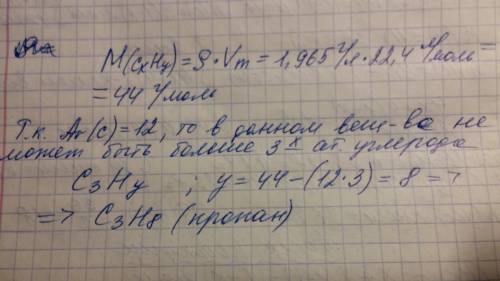 M(CxHy) = ρ · Vm = 1,965 г/л · 22,4 л/моль =
= 44 г/моль
Т.к. Ar(C) = 12, то в данном вещ-ве не
может быть больше 3х ат. углерода
C3Hy ; y = 44 – (12·3) = 8 =>
=> C3H8 (пропан)